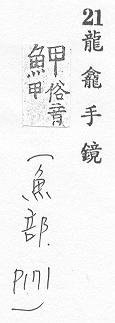 21龍龕手鏡
魻俗音甲
(魚部.
P171)